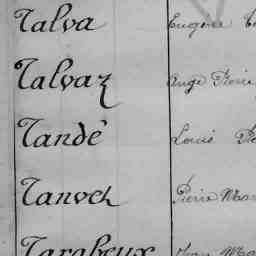 Talva Eugène
Talvaz Ange Pierre
Tandé Louis
Tanvch Pierre Mar
Tarabeux Jean Ma